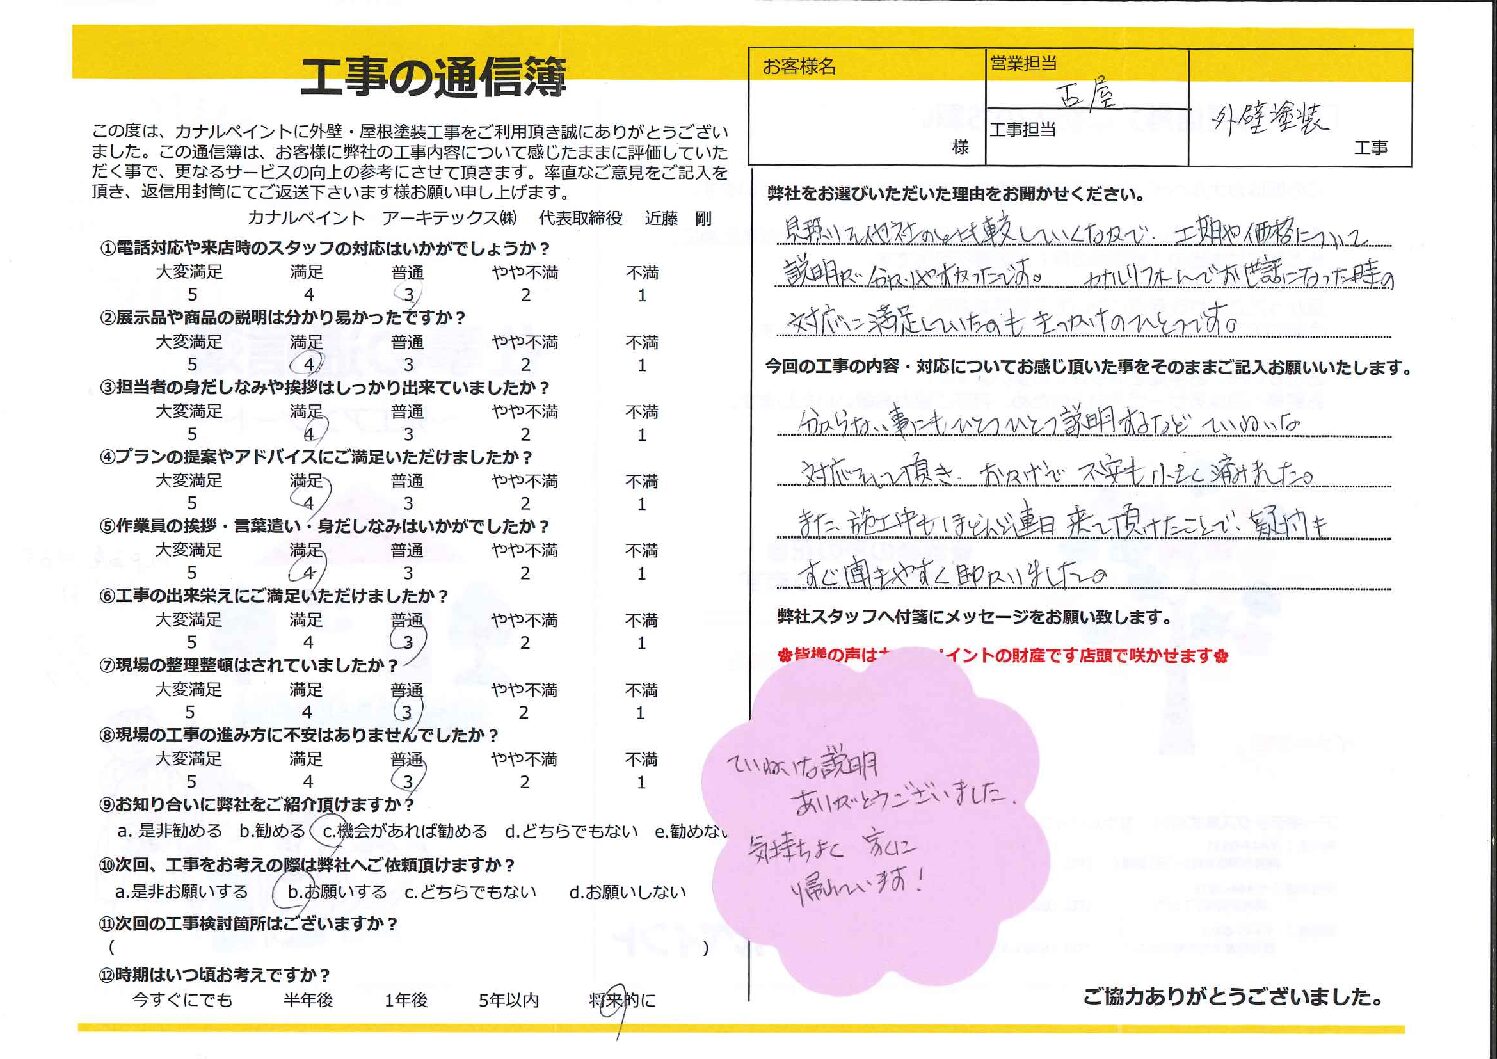 工事の通信簿
この度は、カナルペイントに外壁・屋根塗装工事をご利用頂き誠にありがとうござい
ました。この通信簿は、お客様に弊社の工事内容について感じたままに評価していた
だく事で、更なるサービスの向上の参考にさせて頂きます。率直なご意見をご記入を
頂き、返信用封筒にてご返送下さいます様お願い申し上げます。
カナルペイント アーキテックス㈱ 代表取締役 近藤 剛
①電話対応や来店時のスタッフの対応はいかがでしょうか？
大変満足 満足 普通 やや不満 不満
5 4 3 2 1
②展示品や商品の説明は分かり易かったですか？
大変満足 満足 普通 やや不満 不満
5 4 3 2 1
③担当者の身だしなみや挨拶はしっかり出来ていましたか？
大変満足 満足 普通 やや不満 不満
5 4 3 2 1
④プランの提案やアドバイスにご満足いただけましたか？
大変満足 満足 普通 やや不満 不満
5 4 3 2 1
⑤作業員の挨拶・言葉遣い・身だしなみはいかがでしたか？
大変満足 満足 普通 やや不満 不満
5 4 3 2 1
⑥工事の出来栄えにご満足いただけましたか？
大変満足 満足 普通 やや不満 不満
5 4 3 2 1
⑦現場の整理整頓はされていましたか？
大変満足 満足 普通 やや不満 不満
5 4 3 2 1
⑧現場の工事の進み方に不安はありませんでしたか？
大変満足 満足 普通 やや不満 不満
5 4 3 2 1
⑨お知り合いに弊社をご紹介頂けますか？
a. 是非勧める b.勧める c.機会があれば勧める d.どちらでもない e.勧めない
⑩次回、工事をお考えの際は弊社へご依頼頂けますか？
a.是非お願いする b.お願いする c.どちらでもない d.お願いしない
⑪次回の工事検討箇所はございますか？
( )
⑫時期はいつ頃お考えですか？
今すぐにでも 半年後 1年後 5年以内 将来的に
お客様名
様
営業担当
古屋
工事担当
外壁塗装
工事
弊社をお選びいただいた理由をお聞かせください。
見積りを他社さんと比較していくなかで、工期や価格について
説明が分かりやすかったです。 カナルリフォームでお世話になった時の
対応に満足していたのもきっかけのひとつです。
今回の工事の内容・対応についてお感じ頂いた事をそのままご記入お願いいたします。
分からない事にもひとつひとつ説明するなど ていねいな
対応をして頂き、おかげで 不安も小さく済みました。
また、施工中もほとんど連日 来て頂けたことで、疑問も
すぐ聞きやすく助かりました。
弊社スタッフへ付箋にメッセージをお願い致します。
✿皆様の声は イントの財産です店頭で咲かせます✿
ていねいな説明
ありがとうございました。
気持ちよく 家に
帰れています！
ご協力ありがとうございました。